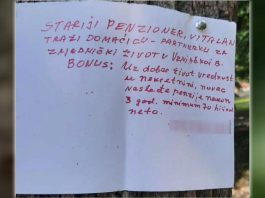 STARIJI PENZIONER, VITALAN
TRAŽI DOMAĆICU - PARTNERKU ZA
ZAJEDNIČKI ŽIVOT U VRNJAČKOJ B.
BONUS: Uz dobar život vrednost
u nekretnini, novac
nasleđe penzije nakon
3 god. minimum 70 hiljada
neto.